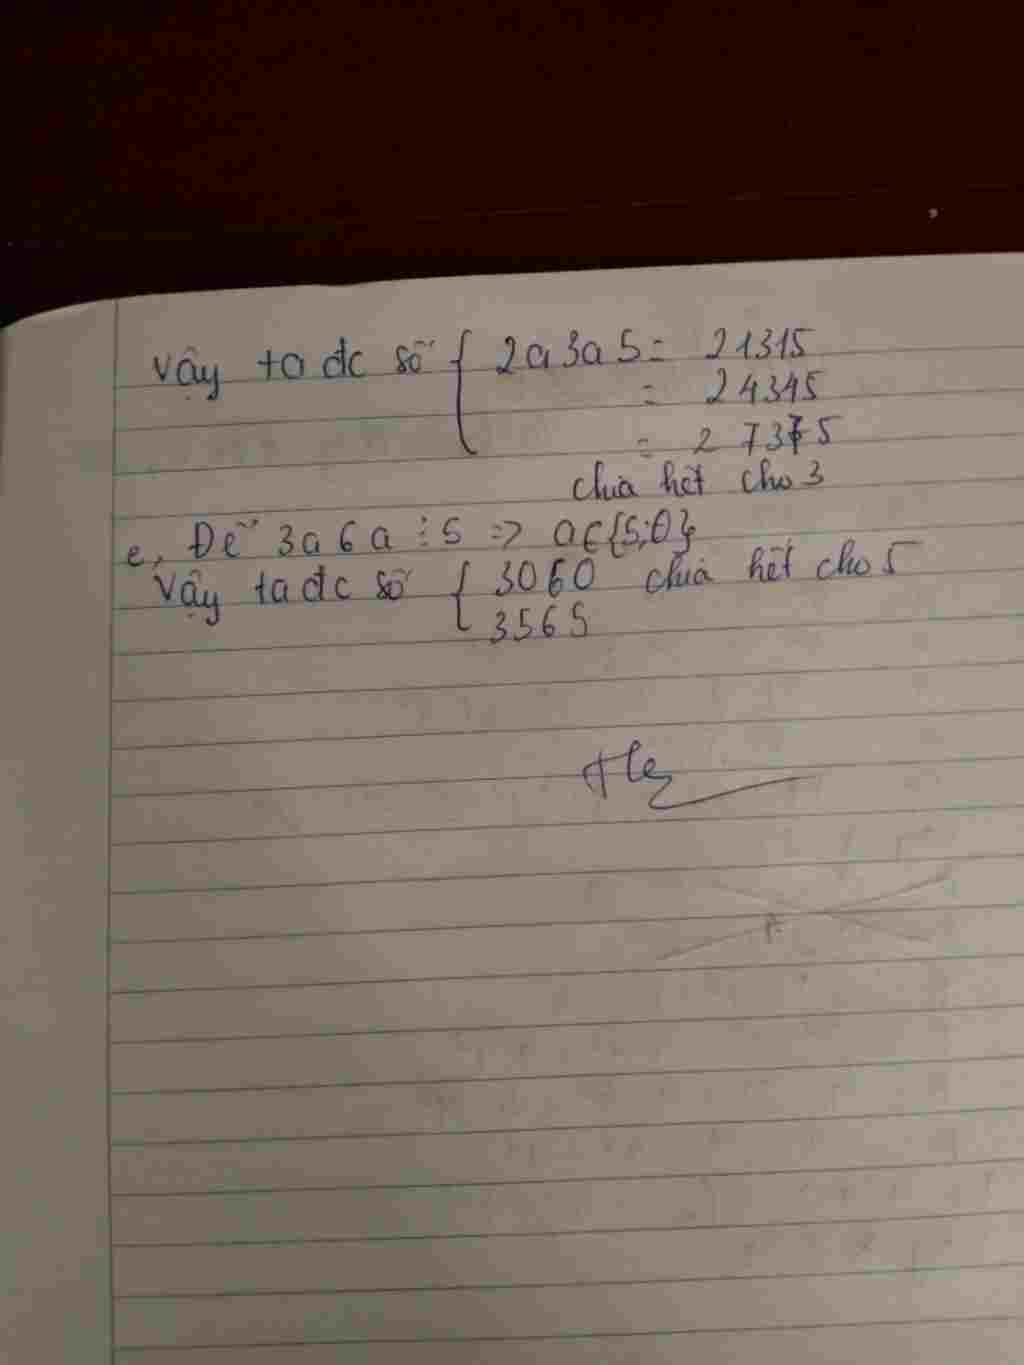 Vậy ta đc số { 2a3a5 = 21315
= 24345
= 27375
chia hết cho 3
e, Để 3a6a ⋮ 5 => a∈{5;0}
Vậy ta đc số { 3060 chia hết cho 5
3565
A